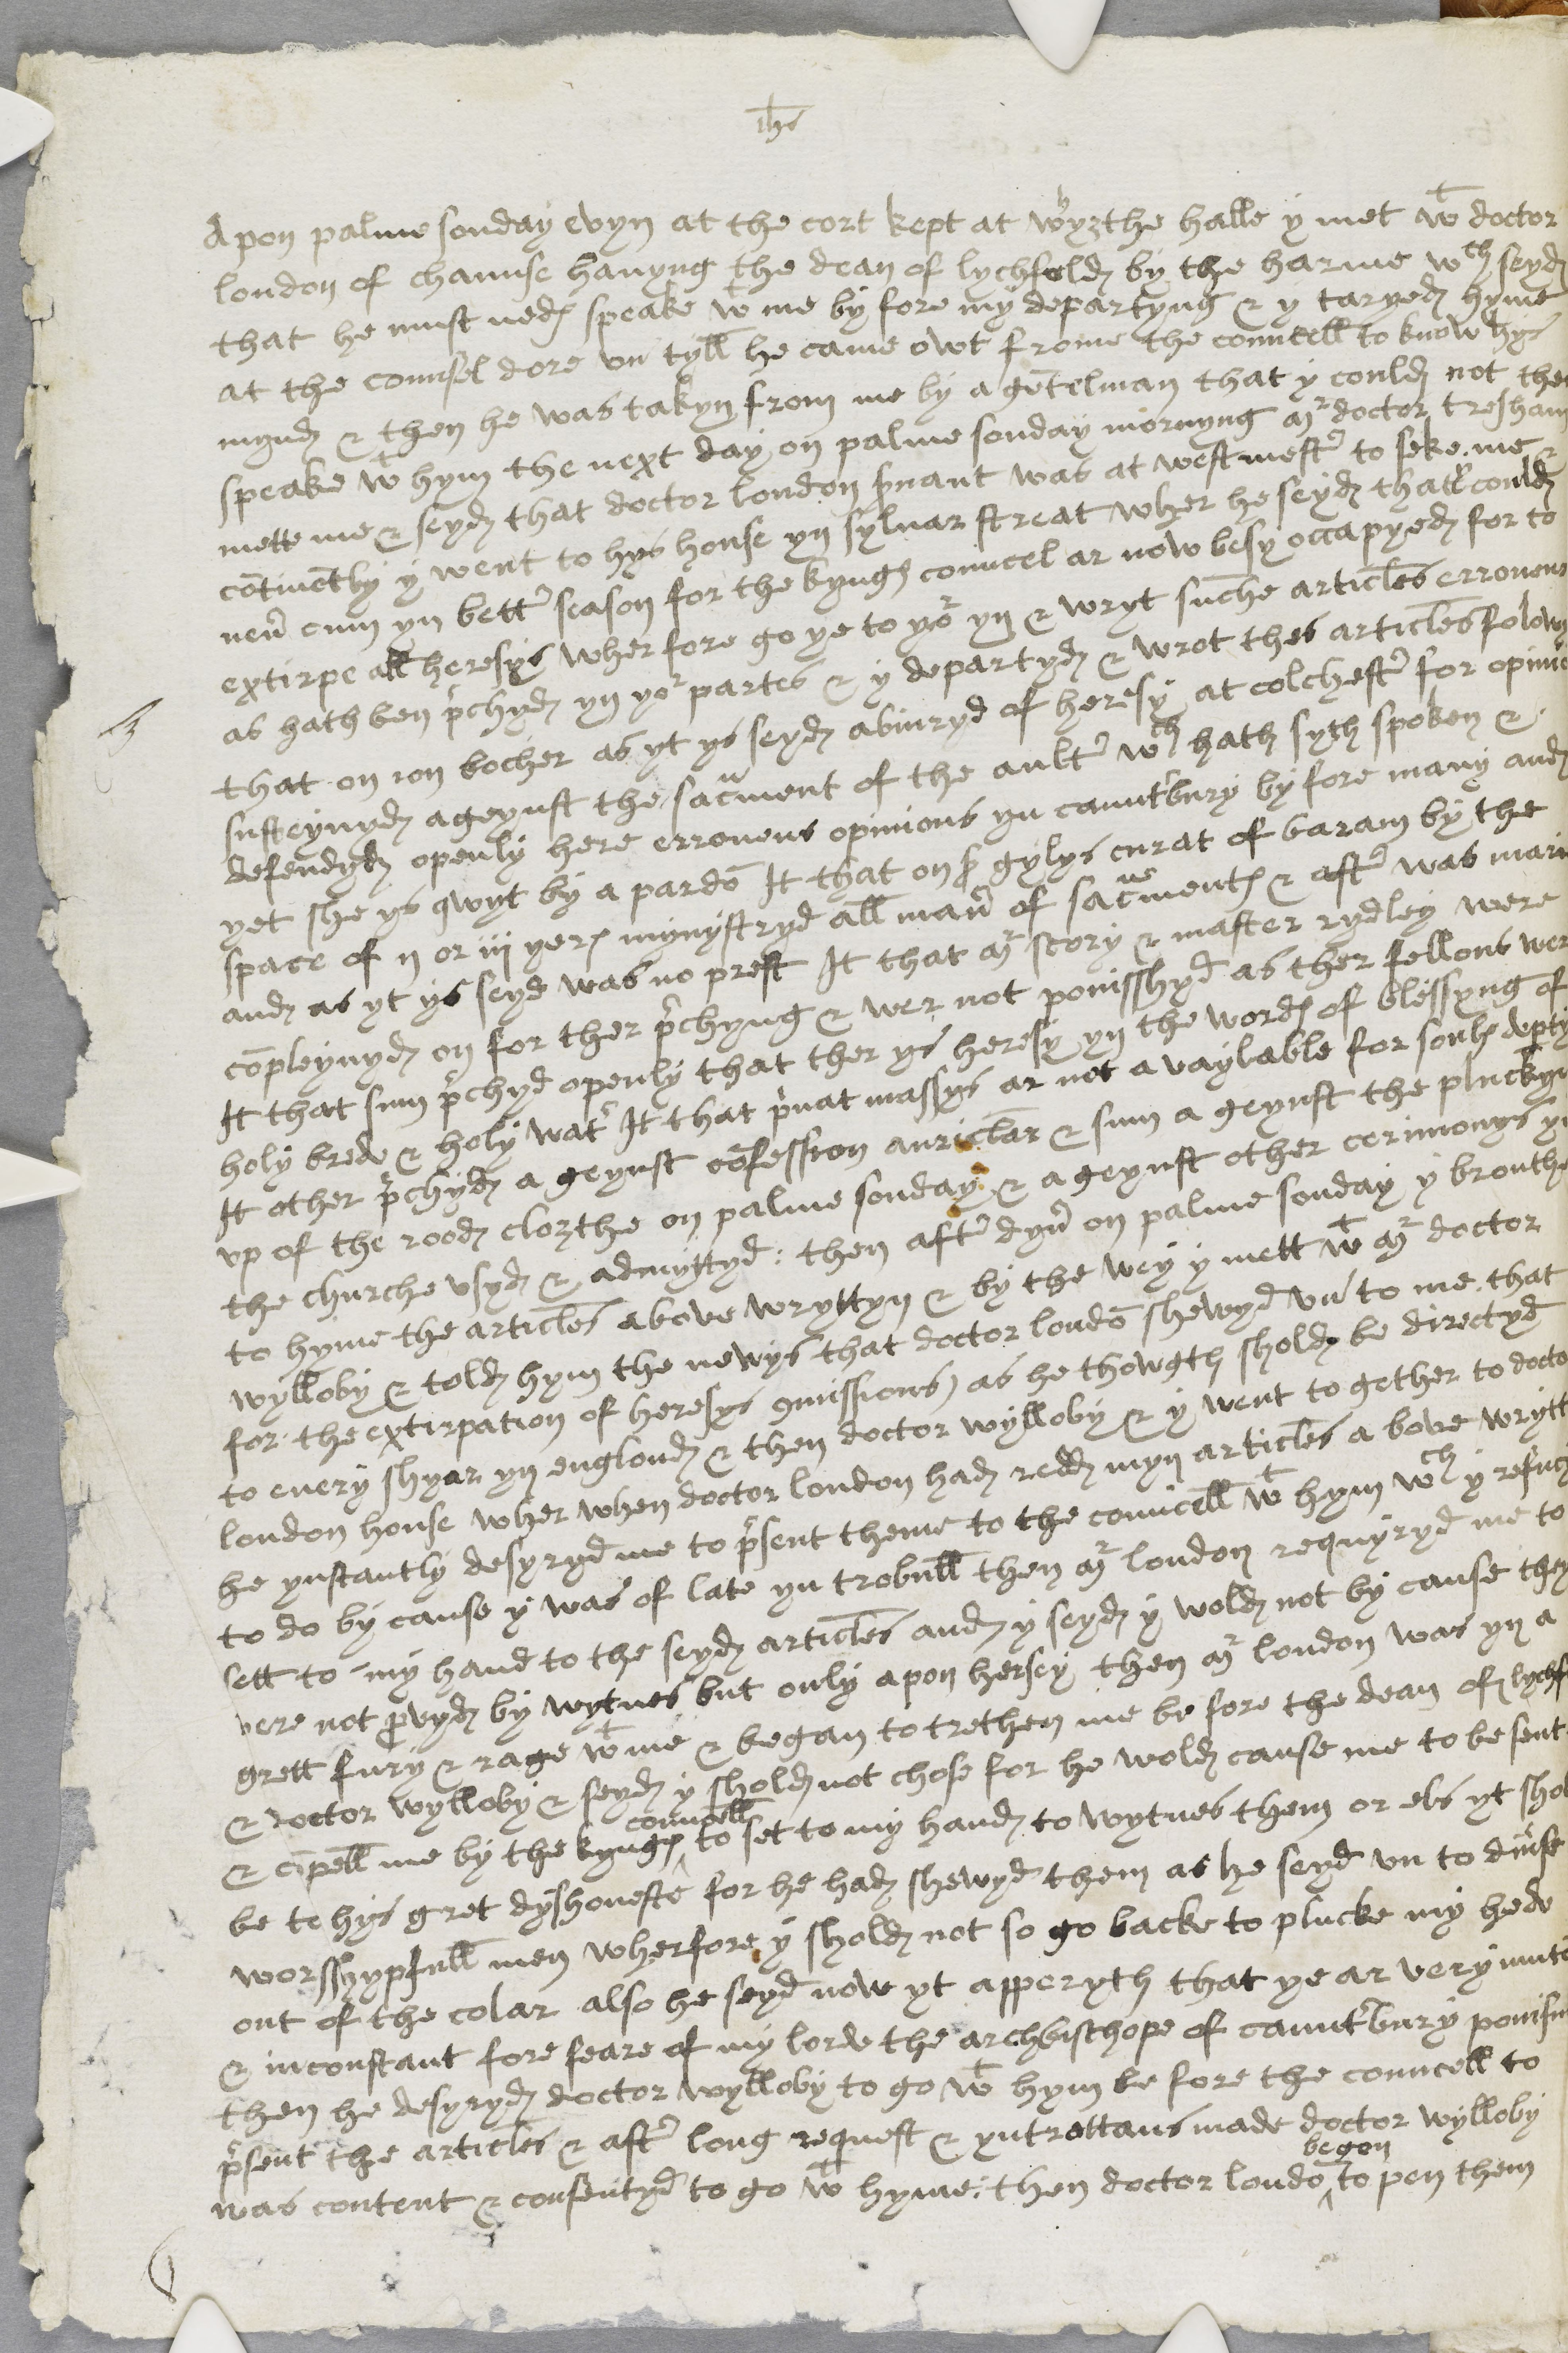 ihs
Apon palme sonday evyn at the cort kept at whyȝthe halle y met wt doctor
london of chaunse hauyng the dean of lychfeld by the harme wch seyd
that he must neds speake wt me by fore my departyng & y taryed hyme
at the counsel dore un tyll he came owt frome the councell to know hys
mynd & then he was takyn from me by a gētelman that y could not then
speake wt hym the next day on palme sonday mornyng Mr doctor tresham
mette me & seyd that doctor london sruant was at westmestr to seke me &
cōtinētly y went to hys house yn syluar streat wher he seyd that y could
neuer cum yn bettr season for the kyngs councel ar now besy occapyed for to
extirpe all heresys wherfore go ye to yor yn & wryt suche articles erroneus
as hath ben prchyd yn yor partes & y departyd & wrot thes articles folowyng
that on ion bocher as yt ys seyd abiuryd of heresy at colchestr for opinio
susteynyd ageynst the sacrment of the aultr wch hath syth spoken &
defendyd openly here erroneus opinions yn cauntrbury by fore many and
yet she ys qwyt by a pardō It that on sr gylys curat of baram by the
space of ii or iii yers mynystryd all manr of sacrments & aftr was mari
and as yt ys seyd was no prest It that Mr scory & master rydley were
cōpleynyd on for ther prchyng & wer not ponisshyd as ther fellons wer
It that sum prchyd openly that ther ys heresy yn the words of blessyng of
holy brede & holy watr It that pruat massys ar not a vaylable for souls dpty
It other prchyd a geynst cōfession auriclar & sum a geynst the pluckyn
up of the rood cloȝthe on palme sonday & a geynst other cerimonys yn
the churche usyd & admyttyd : then aftr dynr on palme sonday y brouthe
to hyme the articles above wryttyn & by the wey y mett wt Mr doctor
wylloby & told hym the newys that doctor londō shewyd un to me that
for the extirpation of heresys cōmissions as he thowgth shold be directyd
to euery shyar yn englond & then doctor wylloby & y went to gether to doctor
london house wher when doctor london had redd myn articles a bove wrytt
he ynstantly desyryd me to prsent theme to the councell wt hym wch y refucy
to do by cause y was of late yn trobull then Mr london requyryd me to
sett to my hand to the seyd articles and y seyd y wold not by cause they
were not provyd by wytnes but only apon hersey then Mr london was yn a
grett fury & rage wt me & began to trethen me be fore the dean of lychf
& doctor wylloby & seyd y shold not chose for he wold cause me to be sent
& cōpell me by the kyngs councell to set to my hand to wytnes them or els yt shol
be to hys gret dyshoneste for he had shewyd them as he seyd un to diurse
worsshypfull men wherfore y shold not so go backe to plucke my hede
out of the colar also he seyd now yt apperyth that ye ar very mutā
& inconstant fore feare of my lorde the archbisthope of cauntrbury
then he desyryd doctor wylloby to go wt hym be fore the councell to
prsent the articles & aftr long request & yntrettans made doctor wylloby
was content & consentyd to go wt hyme : then doctor londō begon to pen them